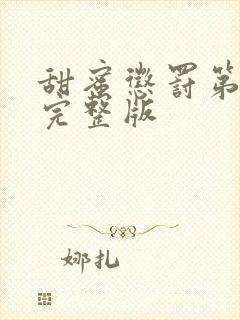 甜蜜惩罚第
完整版
娜扎